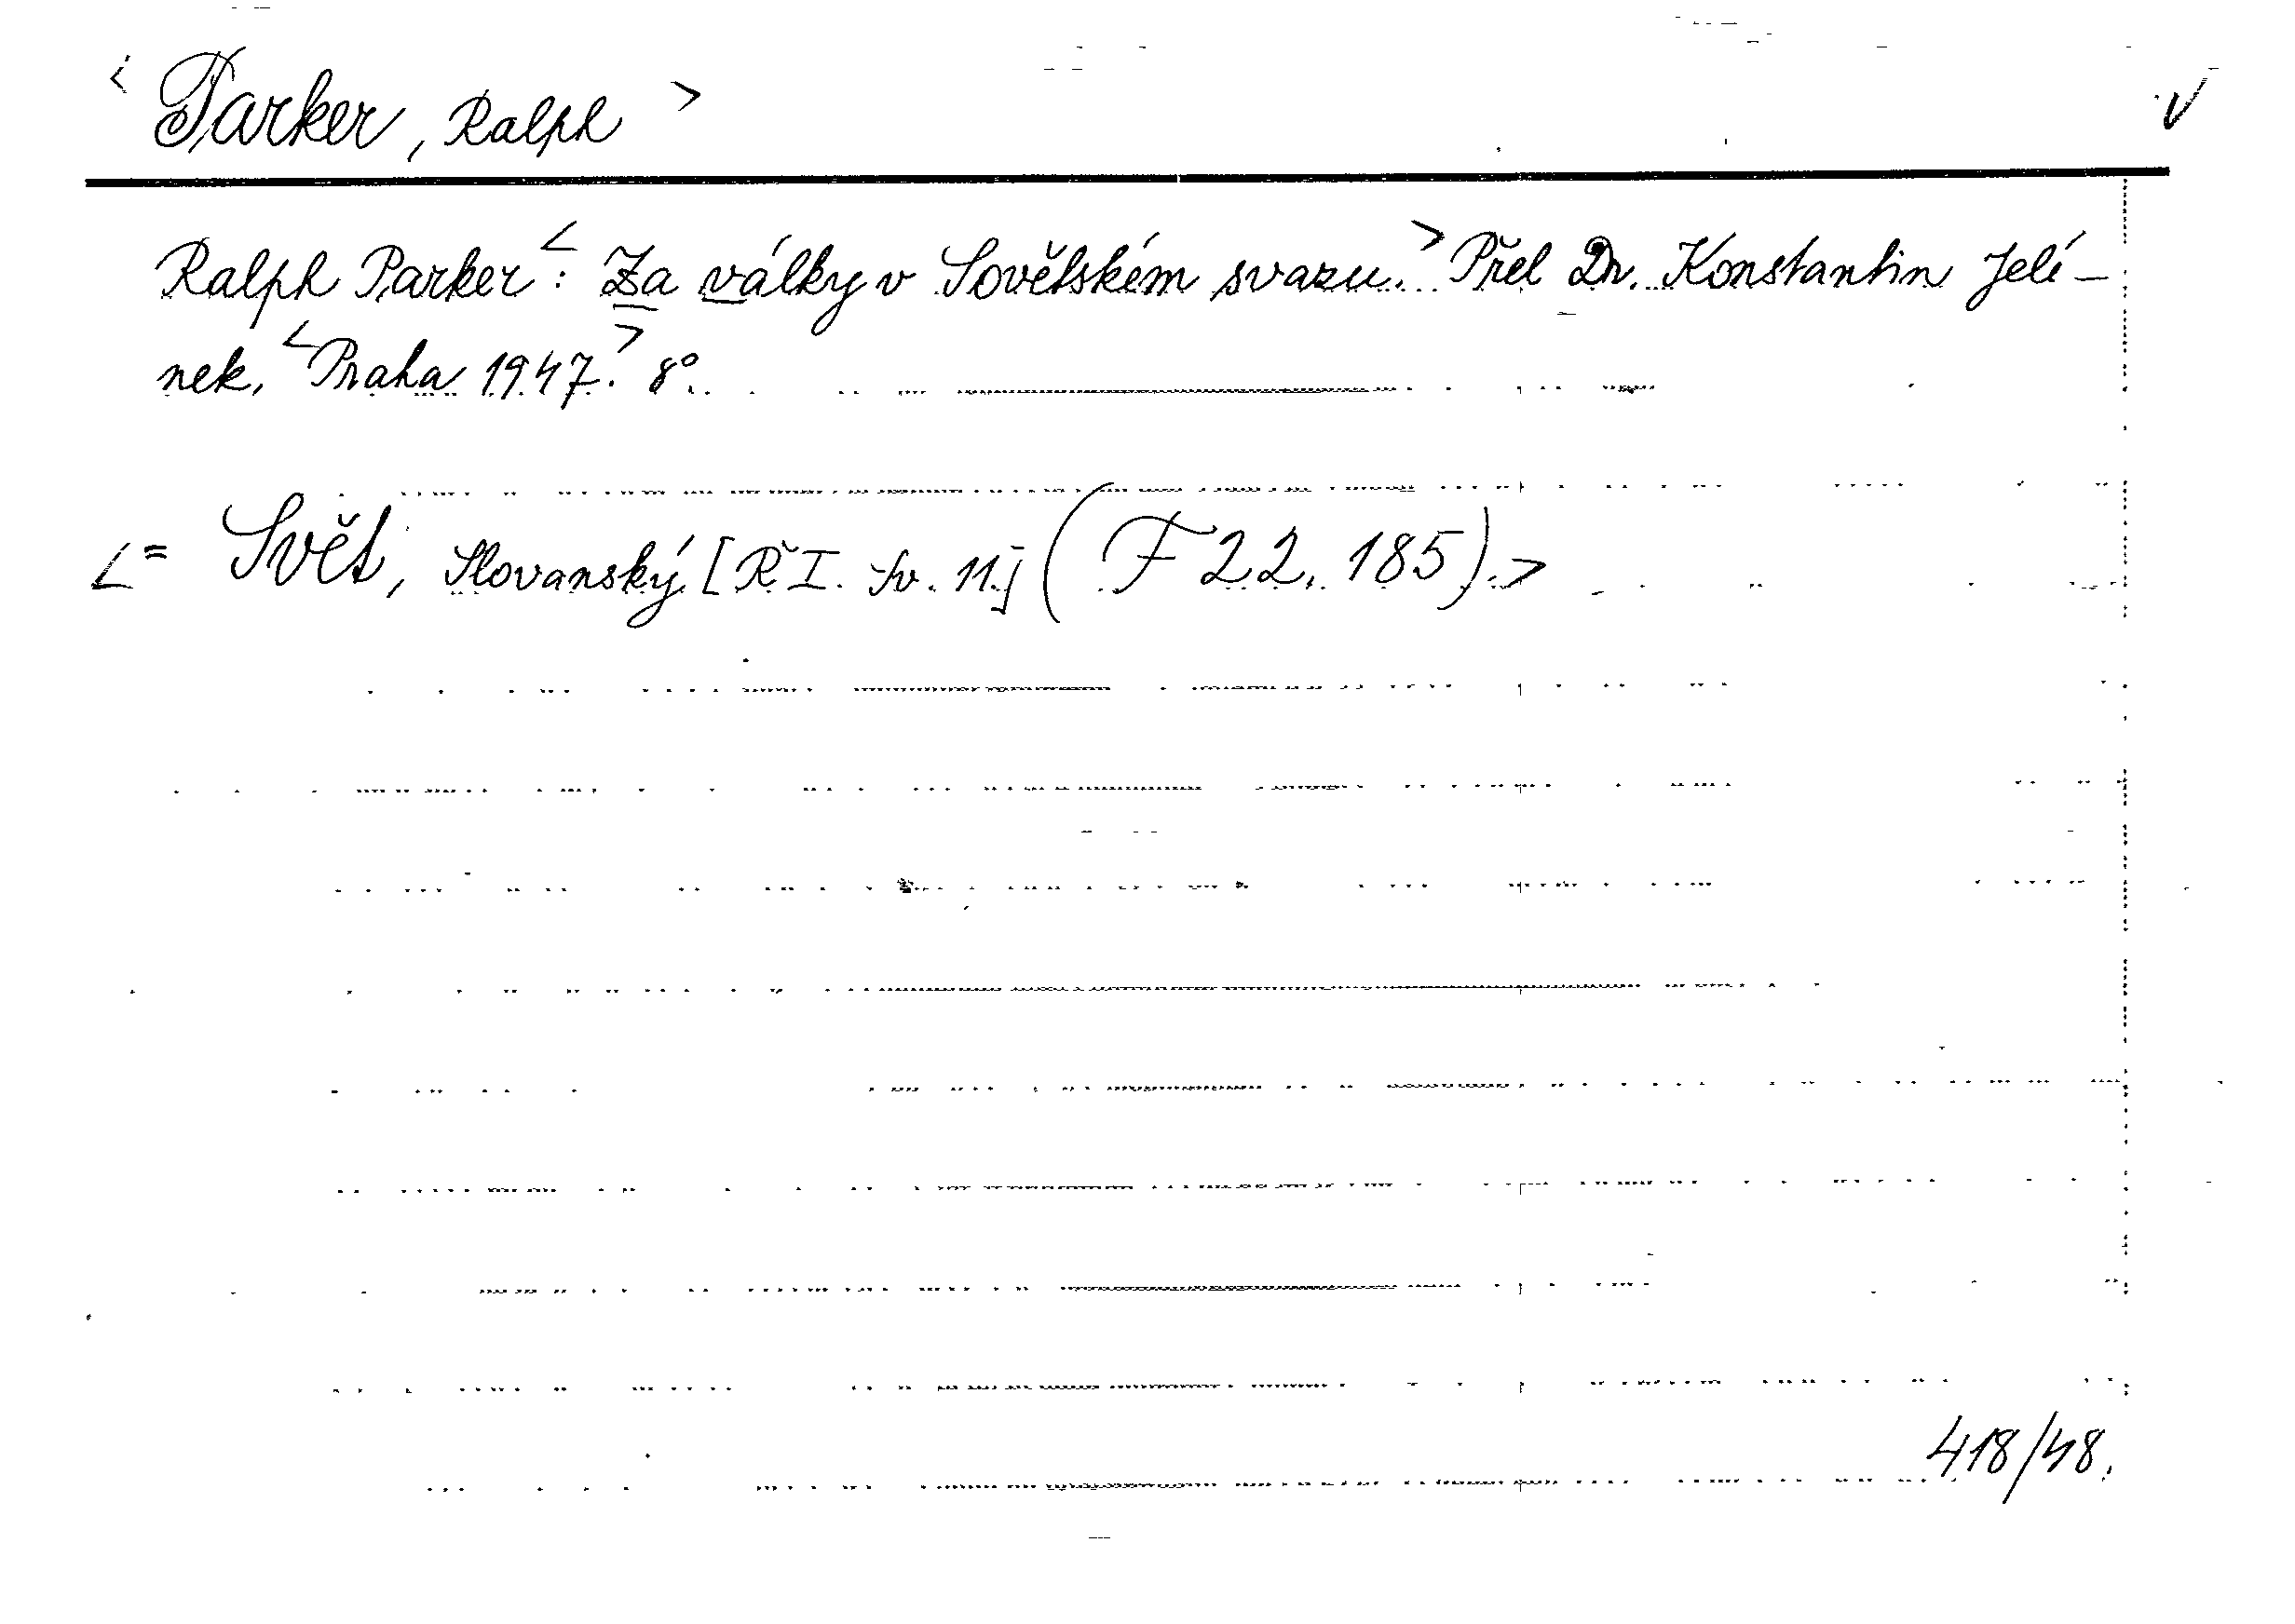 < Parker, Ralph > V
Ralph Parker <: Za války v Sovětském svazu. > Přel Dr. Konstantin Jelí-
nek, < Praha 1947. > 8°.
< = Svět, Slovanský [Ř I. sv. 11.] (F 22. 185). >
418/48.